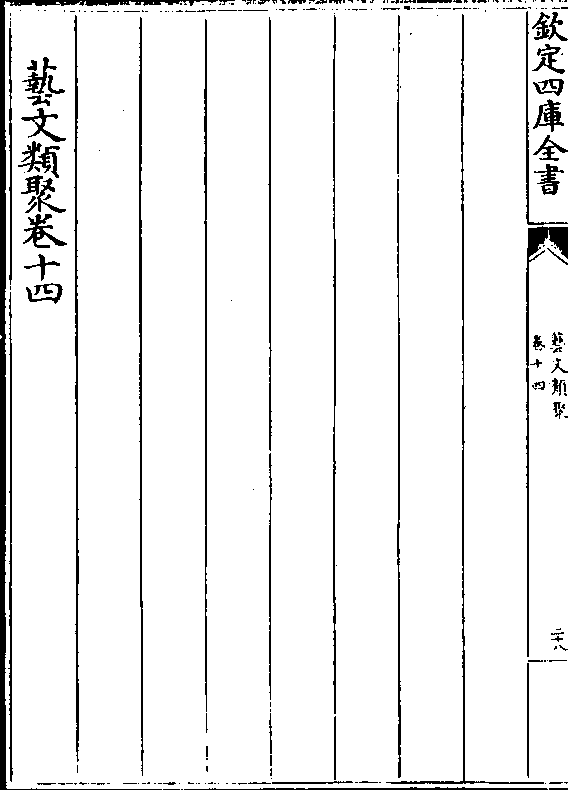 欽定四庫全書
藝文類聚
卷十四
二十八
藝文類聚卷十四